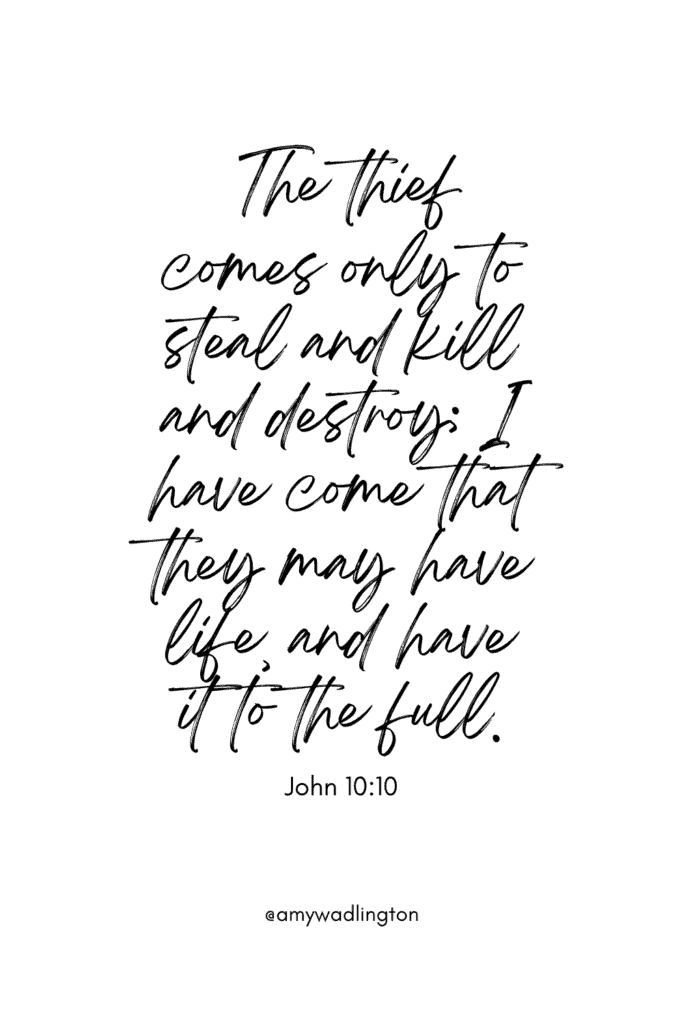 The thief
comes only to
steal and kill
and destroy; I
have come that
they may have
life, and have
it to the full.
John 10:10
@amywadlington